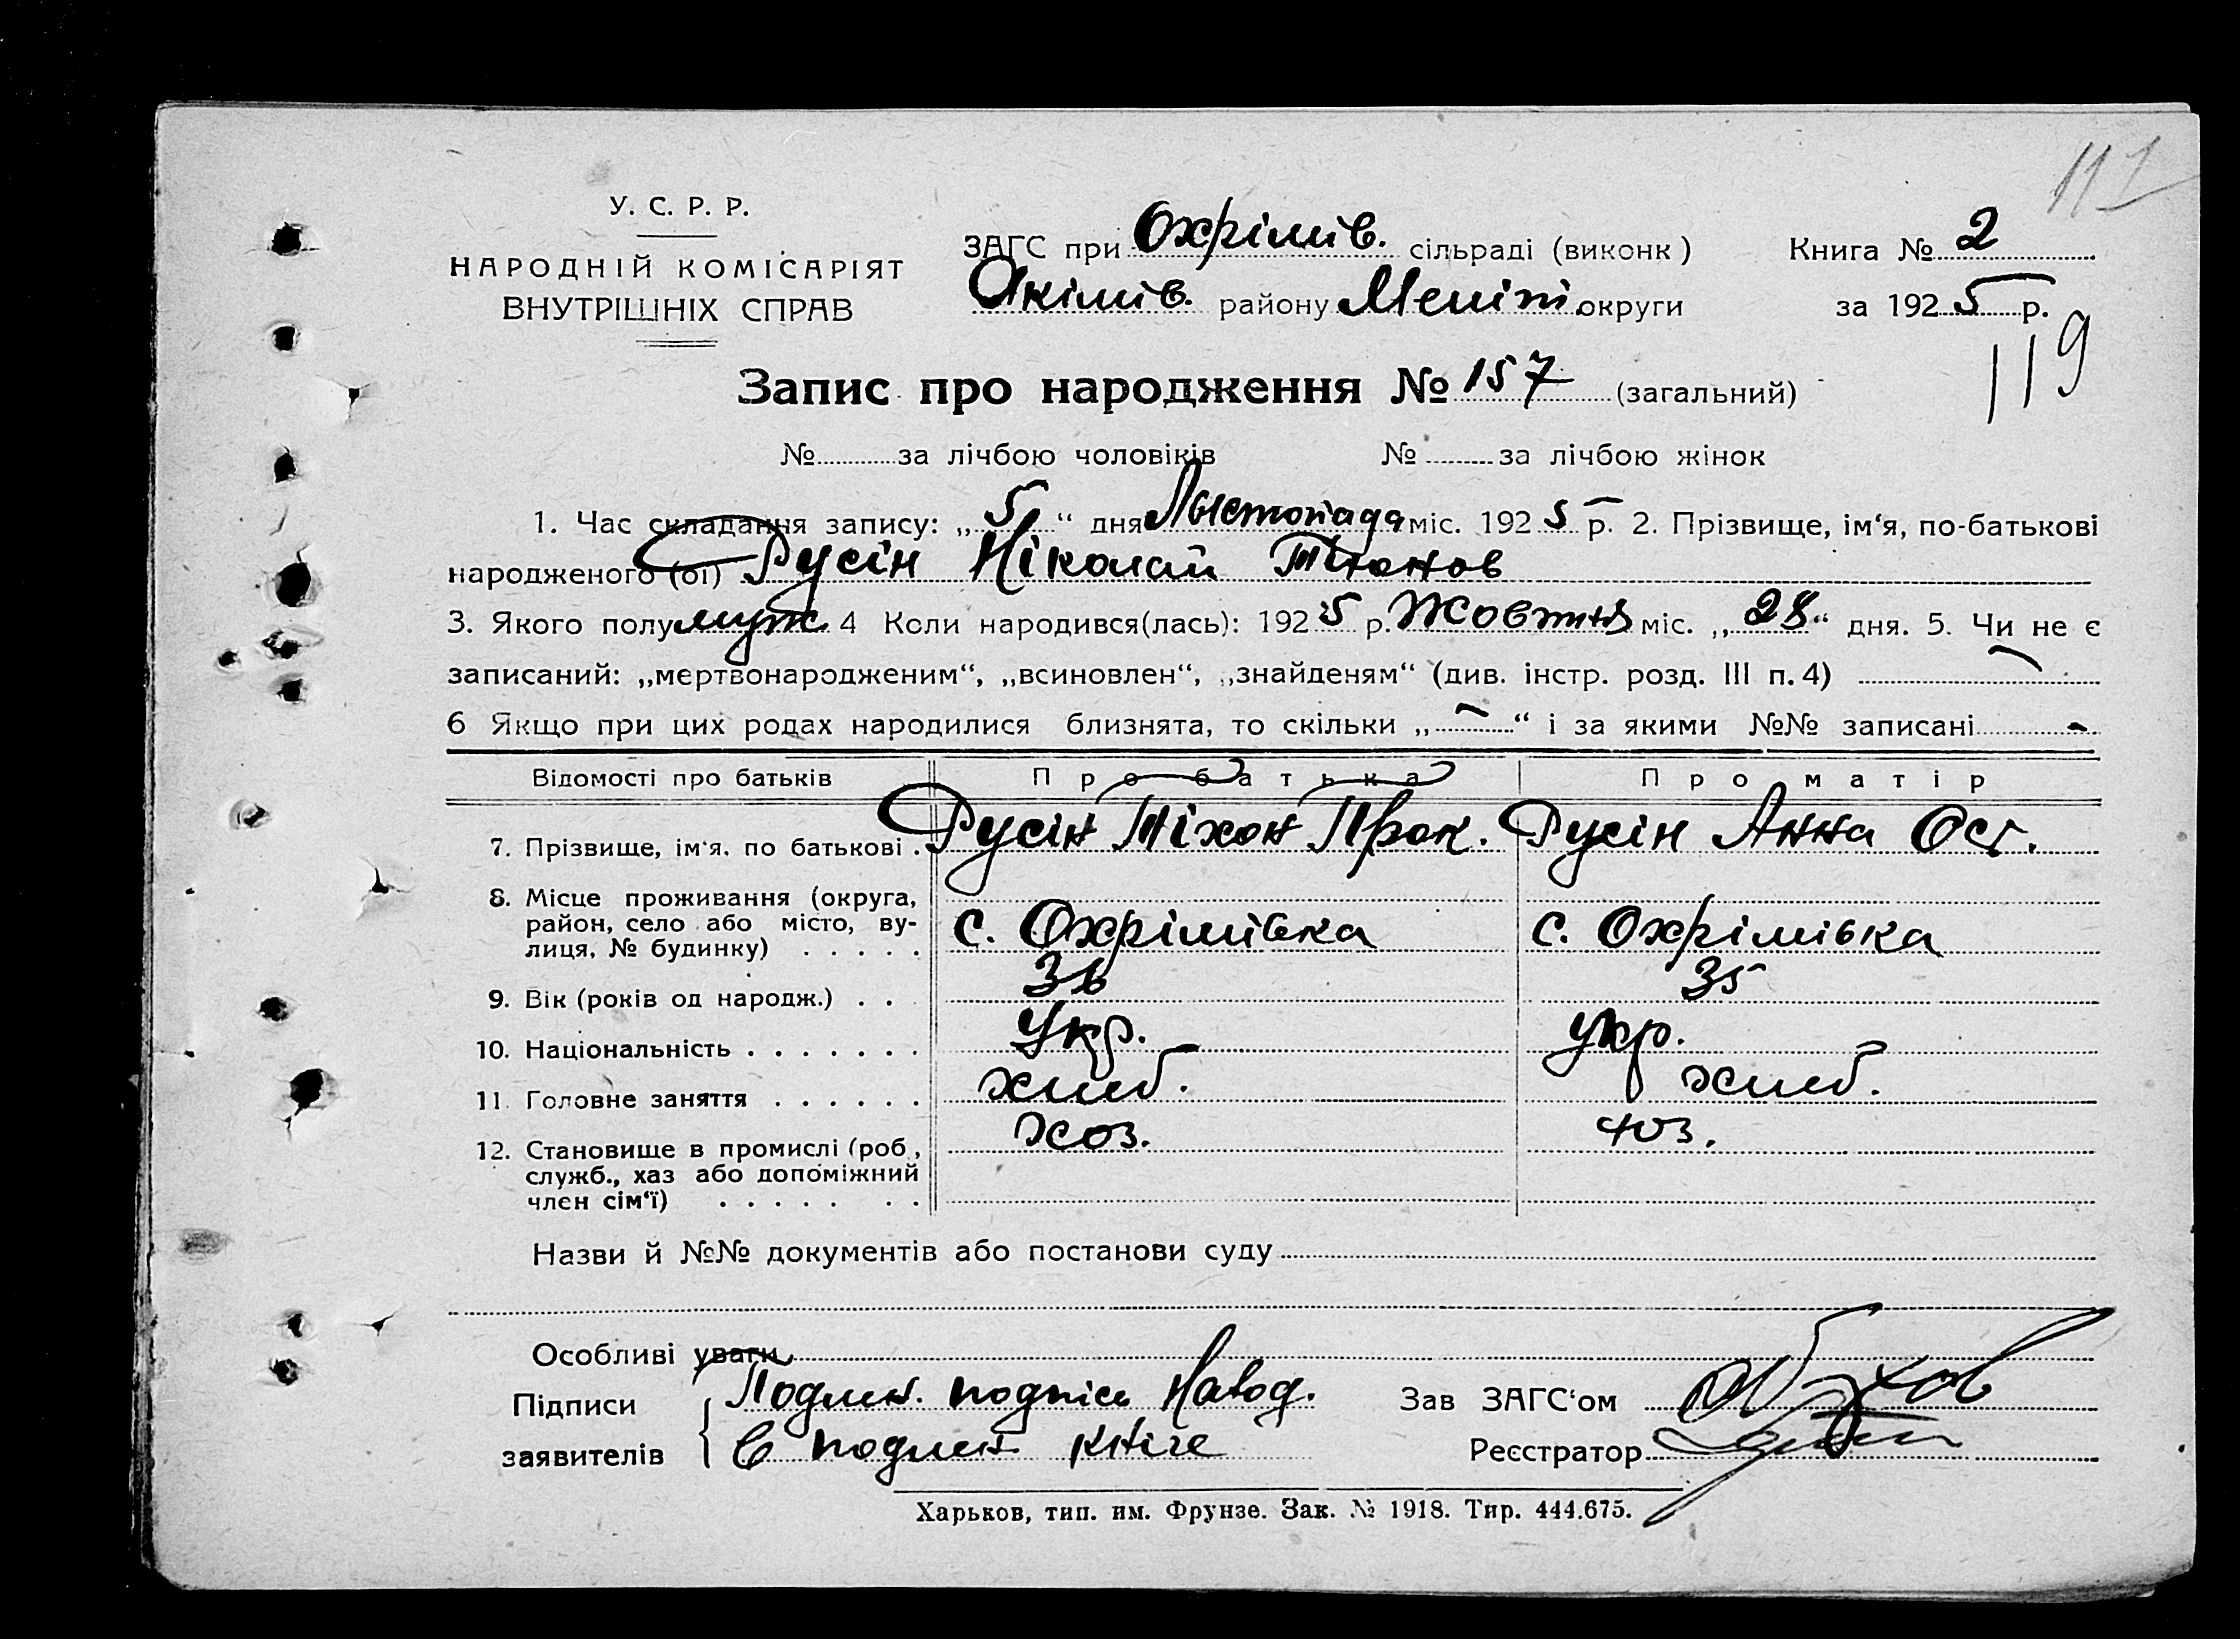 117
У. С. Р. Р.
НАРОДНІЙ КОМІСАРІЯТ
ВНУТРІШНІХ СПРАВ
ЗАГС при Охрімів. сільраді (виконк)
Якімів. району Меліт. округи
Книга № 2
за 1925 р.
119
Запис про народження № 157 (загальний)
№ за лічбою чоловіків № за лічбою жінок
1. Час складання запису: „5“ дня Лыстопада міс. 1925 р. 2. Прізвище, ім'я, по-батькові
народженого (ої) Русін Ніколай Тіхонов
3. Якого полу муж. 4 Коли народився(лась): 1925 р. Жовтня міс. „28“ дня. 5. Чи не є
записаний: „мертвонародженим“, „всиновлен“, „знайденям“ (див. інстр. розд. III п. 4)
6 Якщо при цих родах народилися близнята, то скільки „—“ і за якими №№ записані -
Відомості про батьків Про батька Про матір
7. Прізвище, ім'я. по батькові . Русін Тіхон Прок. Русін Анна Ост.
8. Місце проживання (округа,
район, село або місто, ву-
лиця, № будинку) . . . . . с. Охрімівка с. Охрімівка
9. Вік (років од народж.) . . 36 35
10. Національність . . . . . . . Укр. укр.
11. Головне заняття . . . . . . хліб. хліб.
12. Становище в промислі (роб., хоз. хоз.
служб., хаз або допоміжний
член сім'ї) . . . . . . .
Назви й №№ документів або постанови суду
Особливі уваги
Підписи Подлин. подпісь Навод.
заявителів в подлин. кніге
Зав ЗАГС'ом
Реєстратор
Харьков, тип. им. Фрунзе. Зак. № 1918. Тир. 444.675.